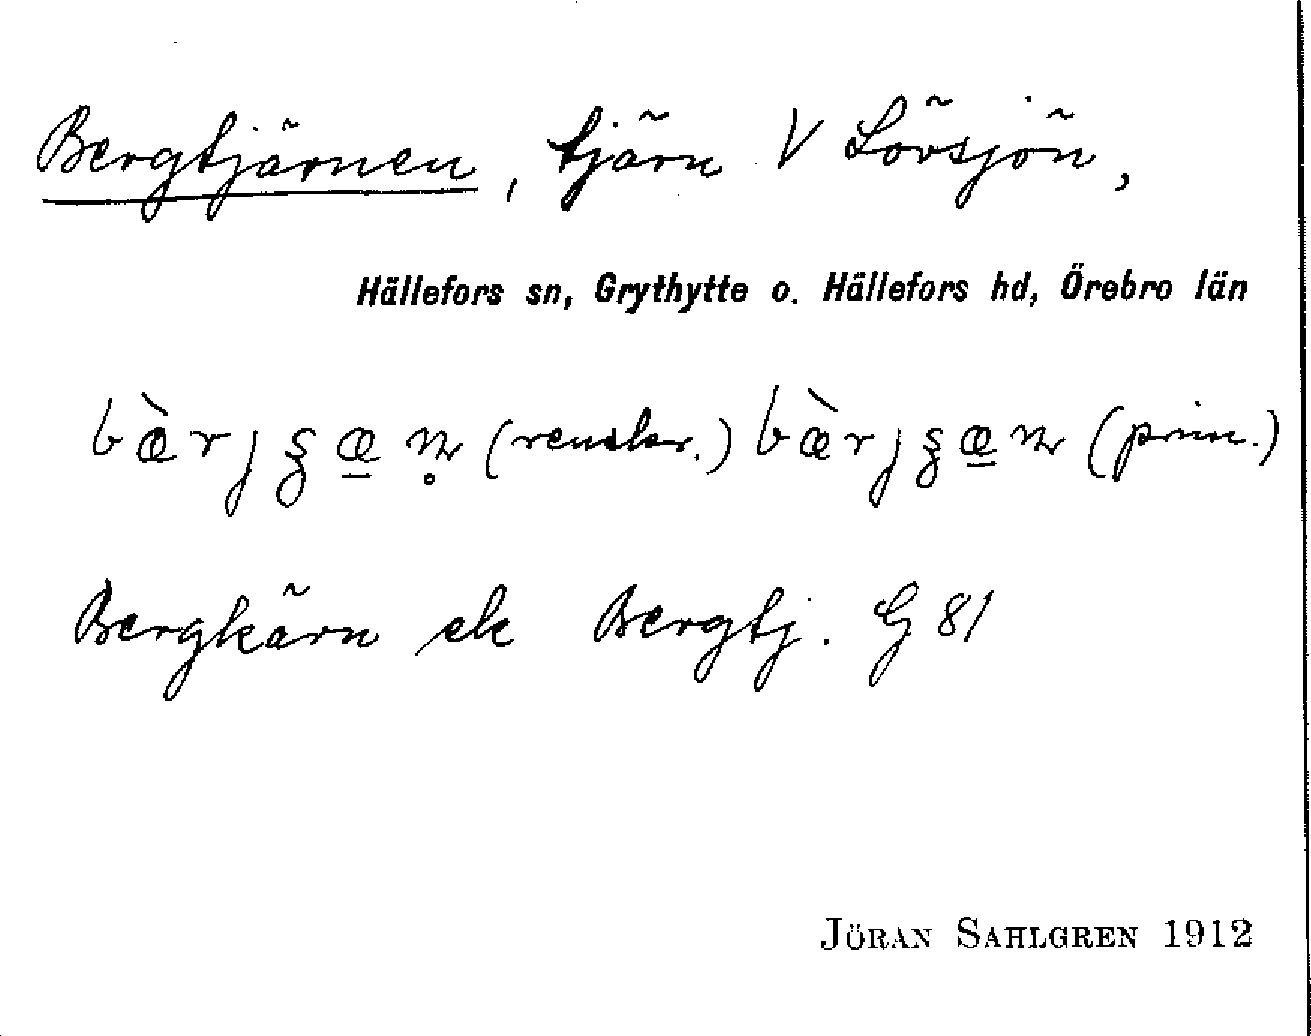 Bergtjärnen, tjärn V Lövsjön,
Hällefors sn, Grythytte o. Hällefors hd, Örebro län
bæ̀rjʂæ̱n̥ (renslar.) bæ̀rjʂæ̱n (prim.)
Bergkärn ek Bergtj. G 81
JÖRAN SAHLGREN 1912